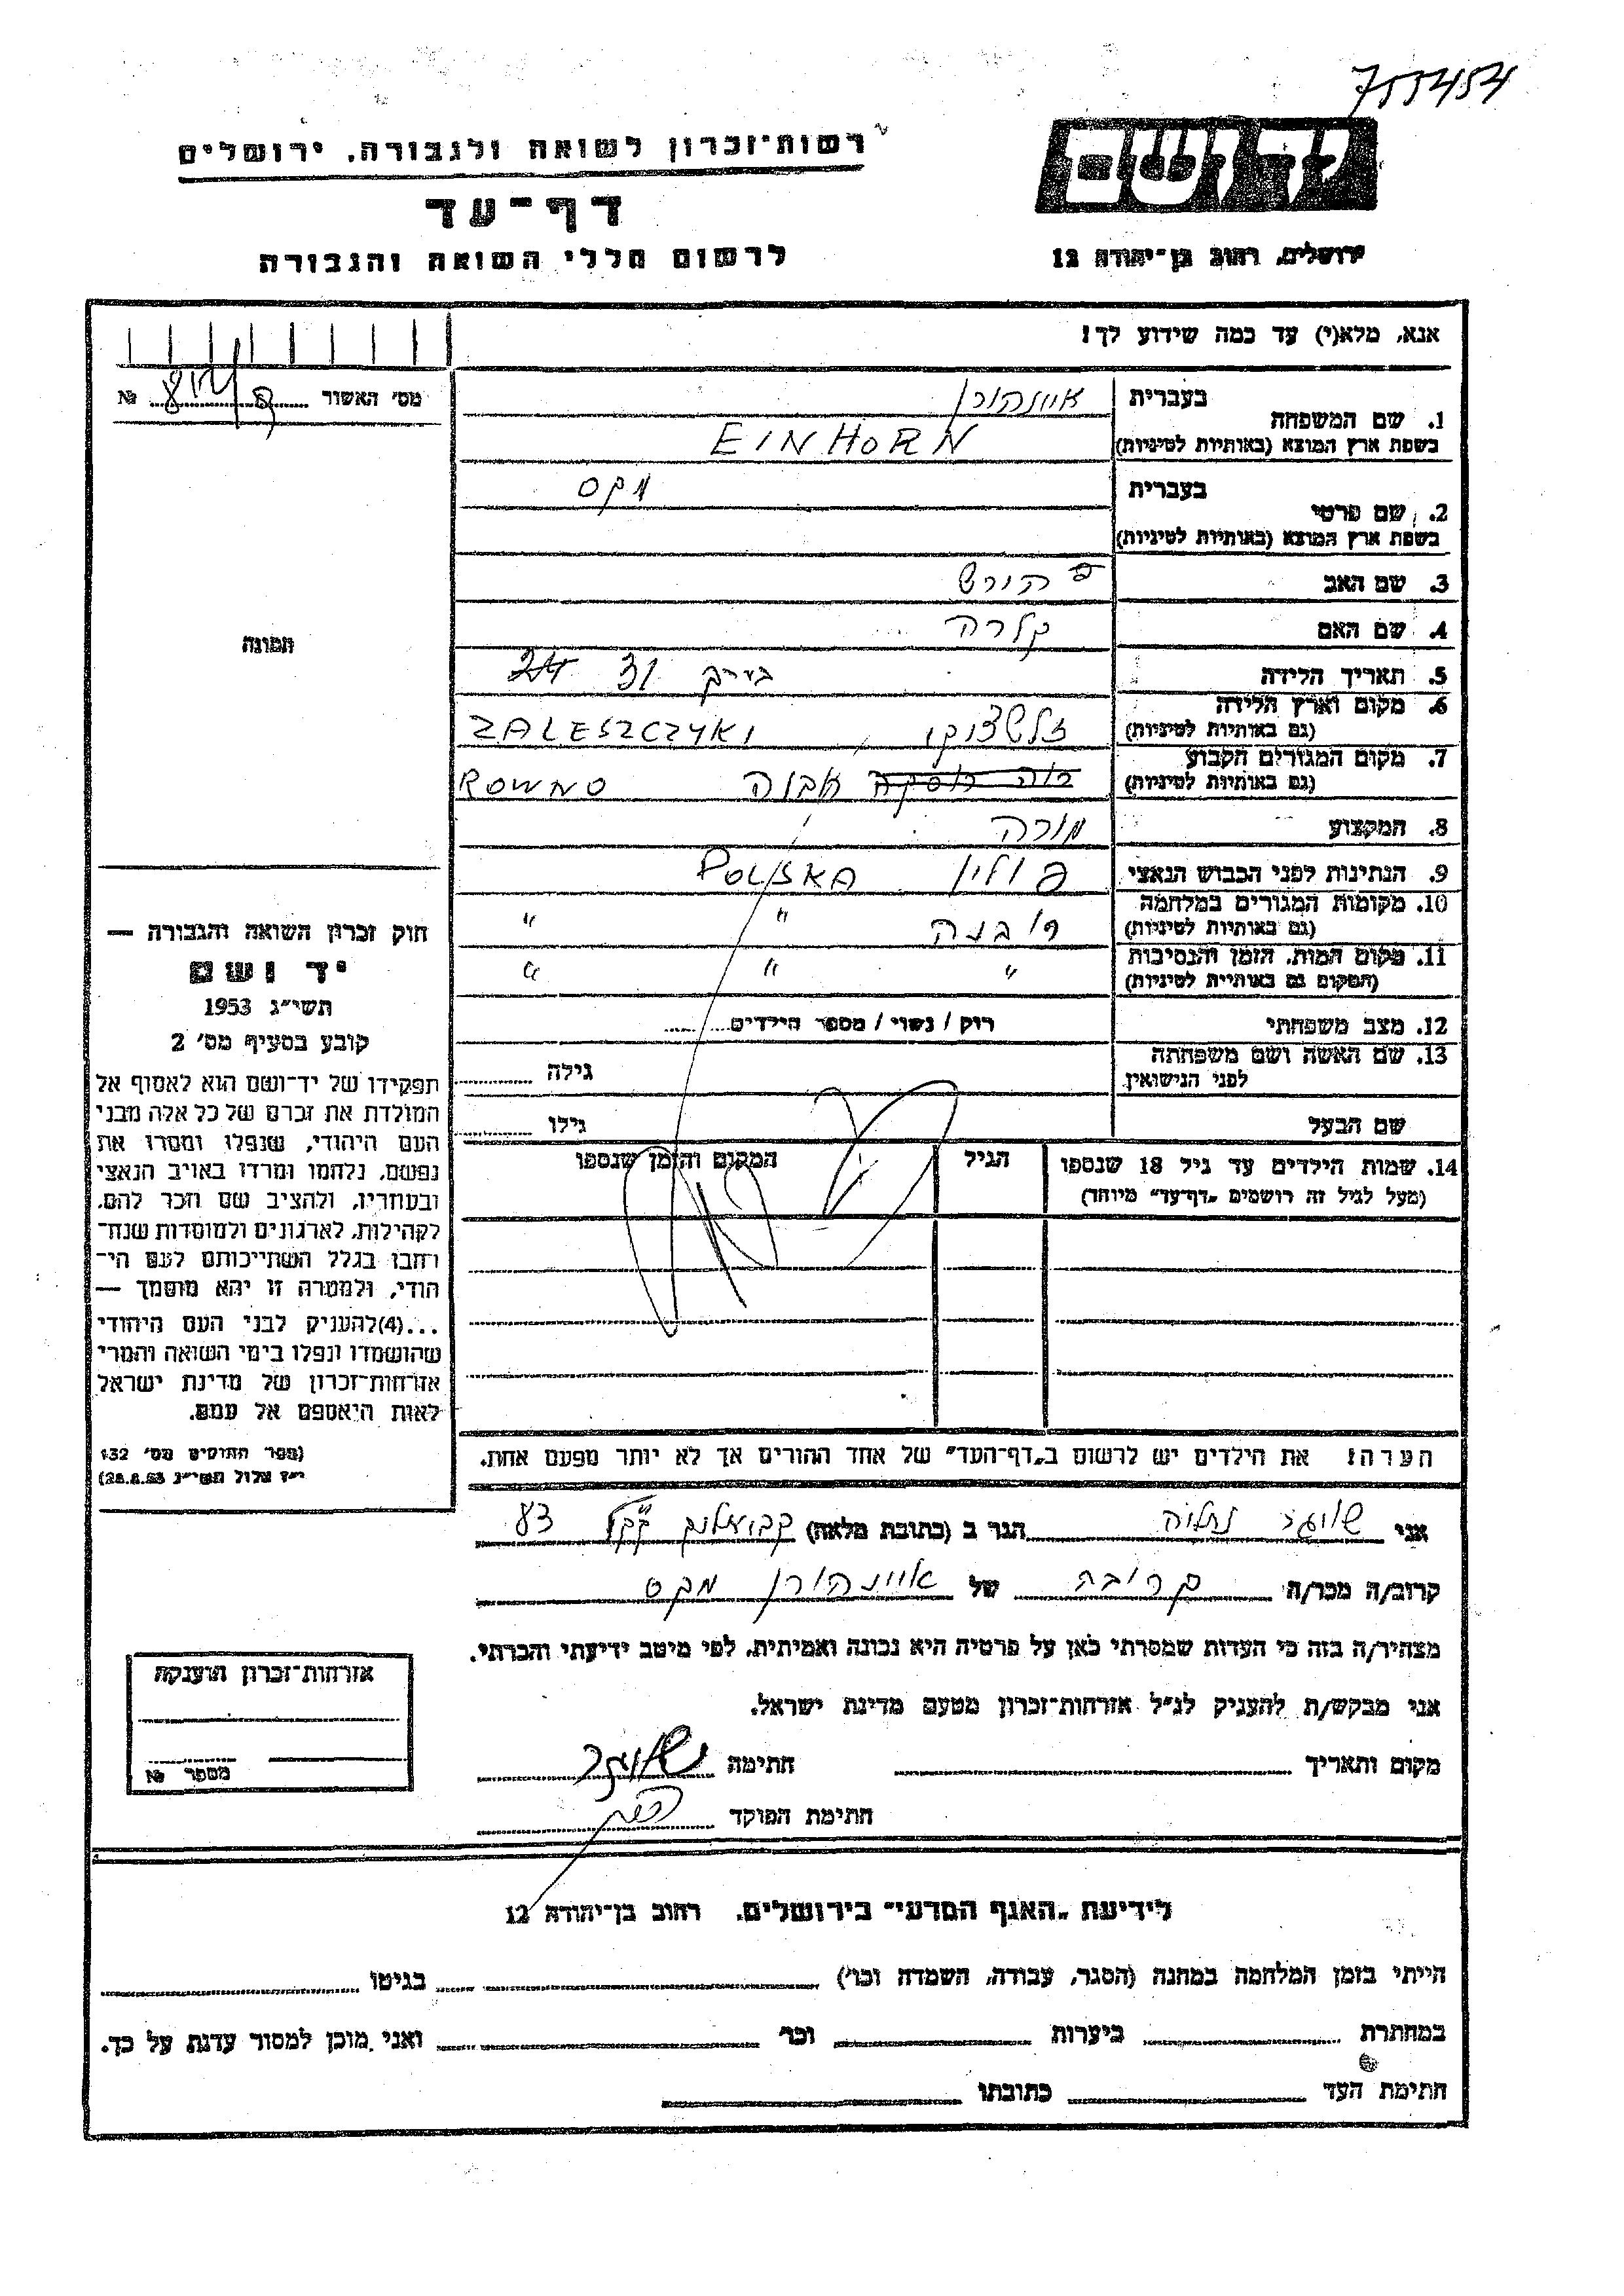 755454
רשות־זכרון לשואה ולגבורה, ירושלים
יד ושם
דף־עד
לרשום חללי השואה והגבורה
ירושלים, רחוב בן־יהודה 12
אנא, מלא(י) עד כמה שידוע לך!
מס׳ האשור №
1. שם המשפחה בעברית איינהורן
בשפת ארץ המוצא (באותיות לטיניות) EINHORN
2. שם פרטי בעברית מקס
בשפת ארץ המוצא (באותיות לטיניות)
3. שם האב
4. שם האם קלרה
5. תאריך הלידה בערך 31
6. מקום וארץ הלידה
(גם באותיות לטיניות) זלשצוקי, ZALESZCZYKI
7. מקום המגורים הקבוע
(גם באותיות לטיניות) ROWNO
8. המקצוע מורה
9. הנתינות לפני הכבוש הנאצי פולין POLSKA
10. מקומות המגורים במלחמה
(גם באותיות לטיניות) רובנה " "
11. מקום המות, הזמן והנסיבות
(המקום גם באותיות לטיניות) " " "
12. מצב משפחתי רוק / נשוי / מספר הילדים
13. שם האשה ושם משפחתה
לפני הנישואין גילה
שם הבעל גילו
14. שמות הילדים עד גיל 18 שנספו הגיל המקום והזמן שנספו
(מעל לגיל זה רושמים „דף־עד״ מיוחד)
הערה: את הילדים יש לרשום ב„דף־העד״ של אחד ההורים אך לא יותר מפעם אחת.
תמונה
חוק זכרון השואה והגבורה —
יד ושם
תשי״ג 1953
קובע בסעיף מס׳ 2
תפקידו של יד־ושם הוא לאסוף אל
המולדת את זכרם של כל אלה מבני
העם היהודי, שנפלו ומסרו את
נפשם, נלחמו ומרדו באויב הנאצי
ובעוזריו, ולהציב שם וזכר להם,
לקהילות, לארגונים ולמוסדות שנח־
רחבו בגלל השתייכותם לעם הי־
הודי, ולמטרה זו יהא מוסמך —
...(4)להעניק לבני העם היהודי
שהושמדו ונפלו בימי השואה והמרי
אזרחות־זכרון של מדינת ישראל
לאות היאספם אל עמם.
(ספר החוקים מס׳ 132
י״ז אלול תשי״ג 28.8.53)
אני הגר ב (כתובת מלאה) 83
קרוב/ה מכר/ה קרובה של איינהורן מקס
מצהיר/ה בזה כי העדות שמסרתי כאן על פרטיה היא נכונה ואמיתית, לפי מיטב ידיעתי והכרתי.
אני מבקש/ת להעניק לנ״ל אזרחות־זכרון מטעם מדינת ישראל.
מקום ותאריך חתימה
חתימת הפוקד
אזרחות־זכרון הוענקה
מספר №
לידיעת „האגף המדעי״ בירושלים, רחוב בן־יהודה 12
הייתי בזמן המלחמה במחנה (הסגר, עבודה, השמדה וכו׳) בגיטו
במחתרת ביערות וכו׳ ואני מוכן למסור עדות על כך.
חתימת העד כתובתו